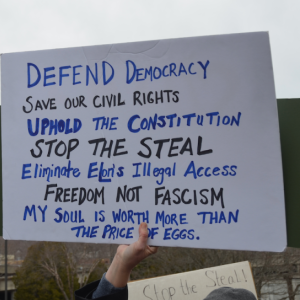 DEFEND DEMOCRACY
SAVE OUR CIVIL RIGHTS
UPHOLD THE CONSTITUTION
STOP THE STEAL
Eliminate Elon's Illegal Access
FREEDOM NOT FASCISM
MY SOUL IS WORTH MORE THAN
THE PRICE OF EGGS.
Stop the Steal!